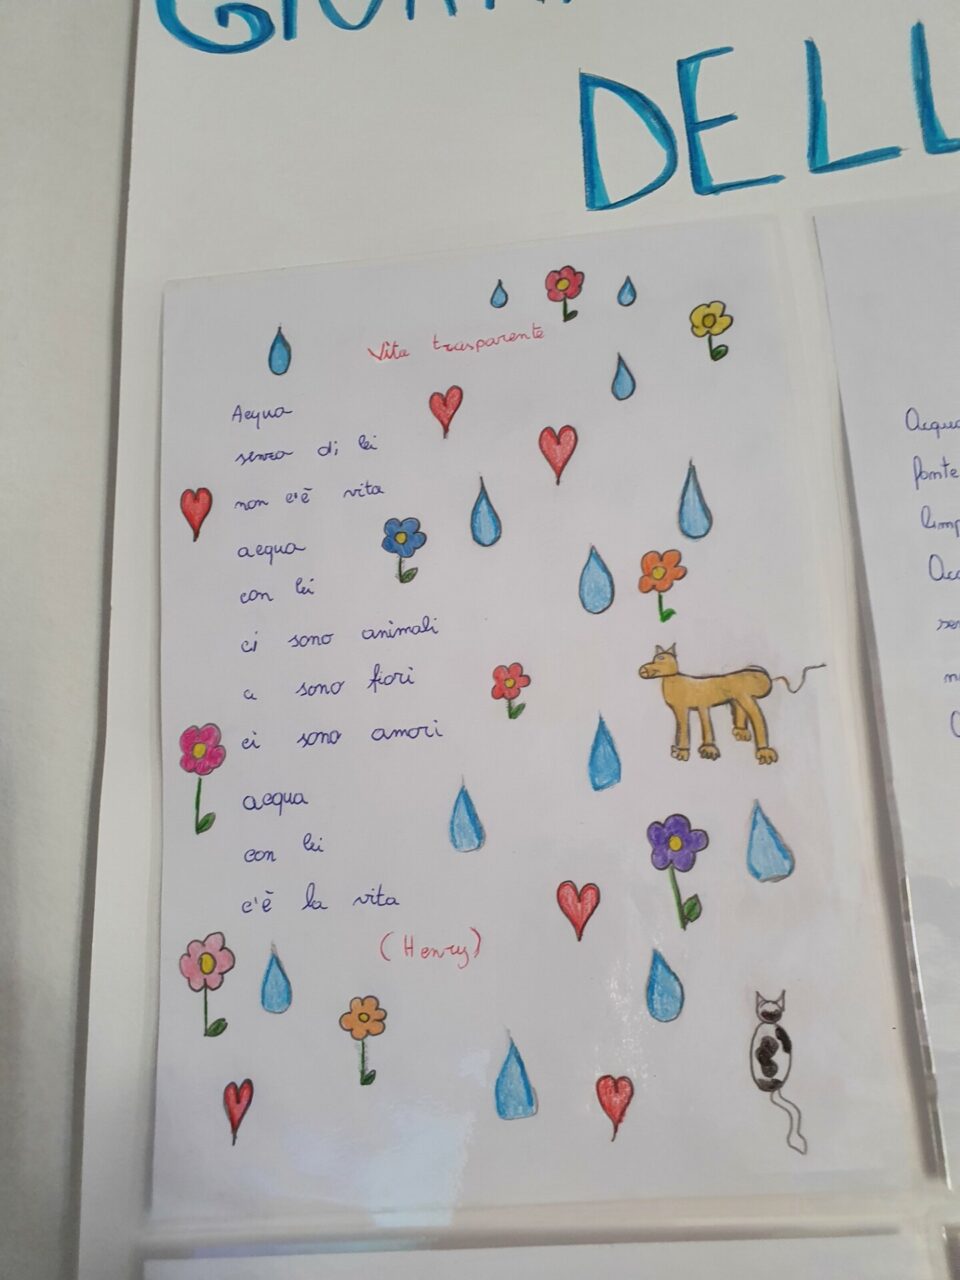 DELL
Vita trasparente
Acqua
senza di lei
non c'è vita
acqua
con lei
ci sono animali
ci sono fiori
ci sono amori
acqua
con lei
c'è la vita
(Henry)
Acqua
fonte
limp
Acq
sen